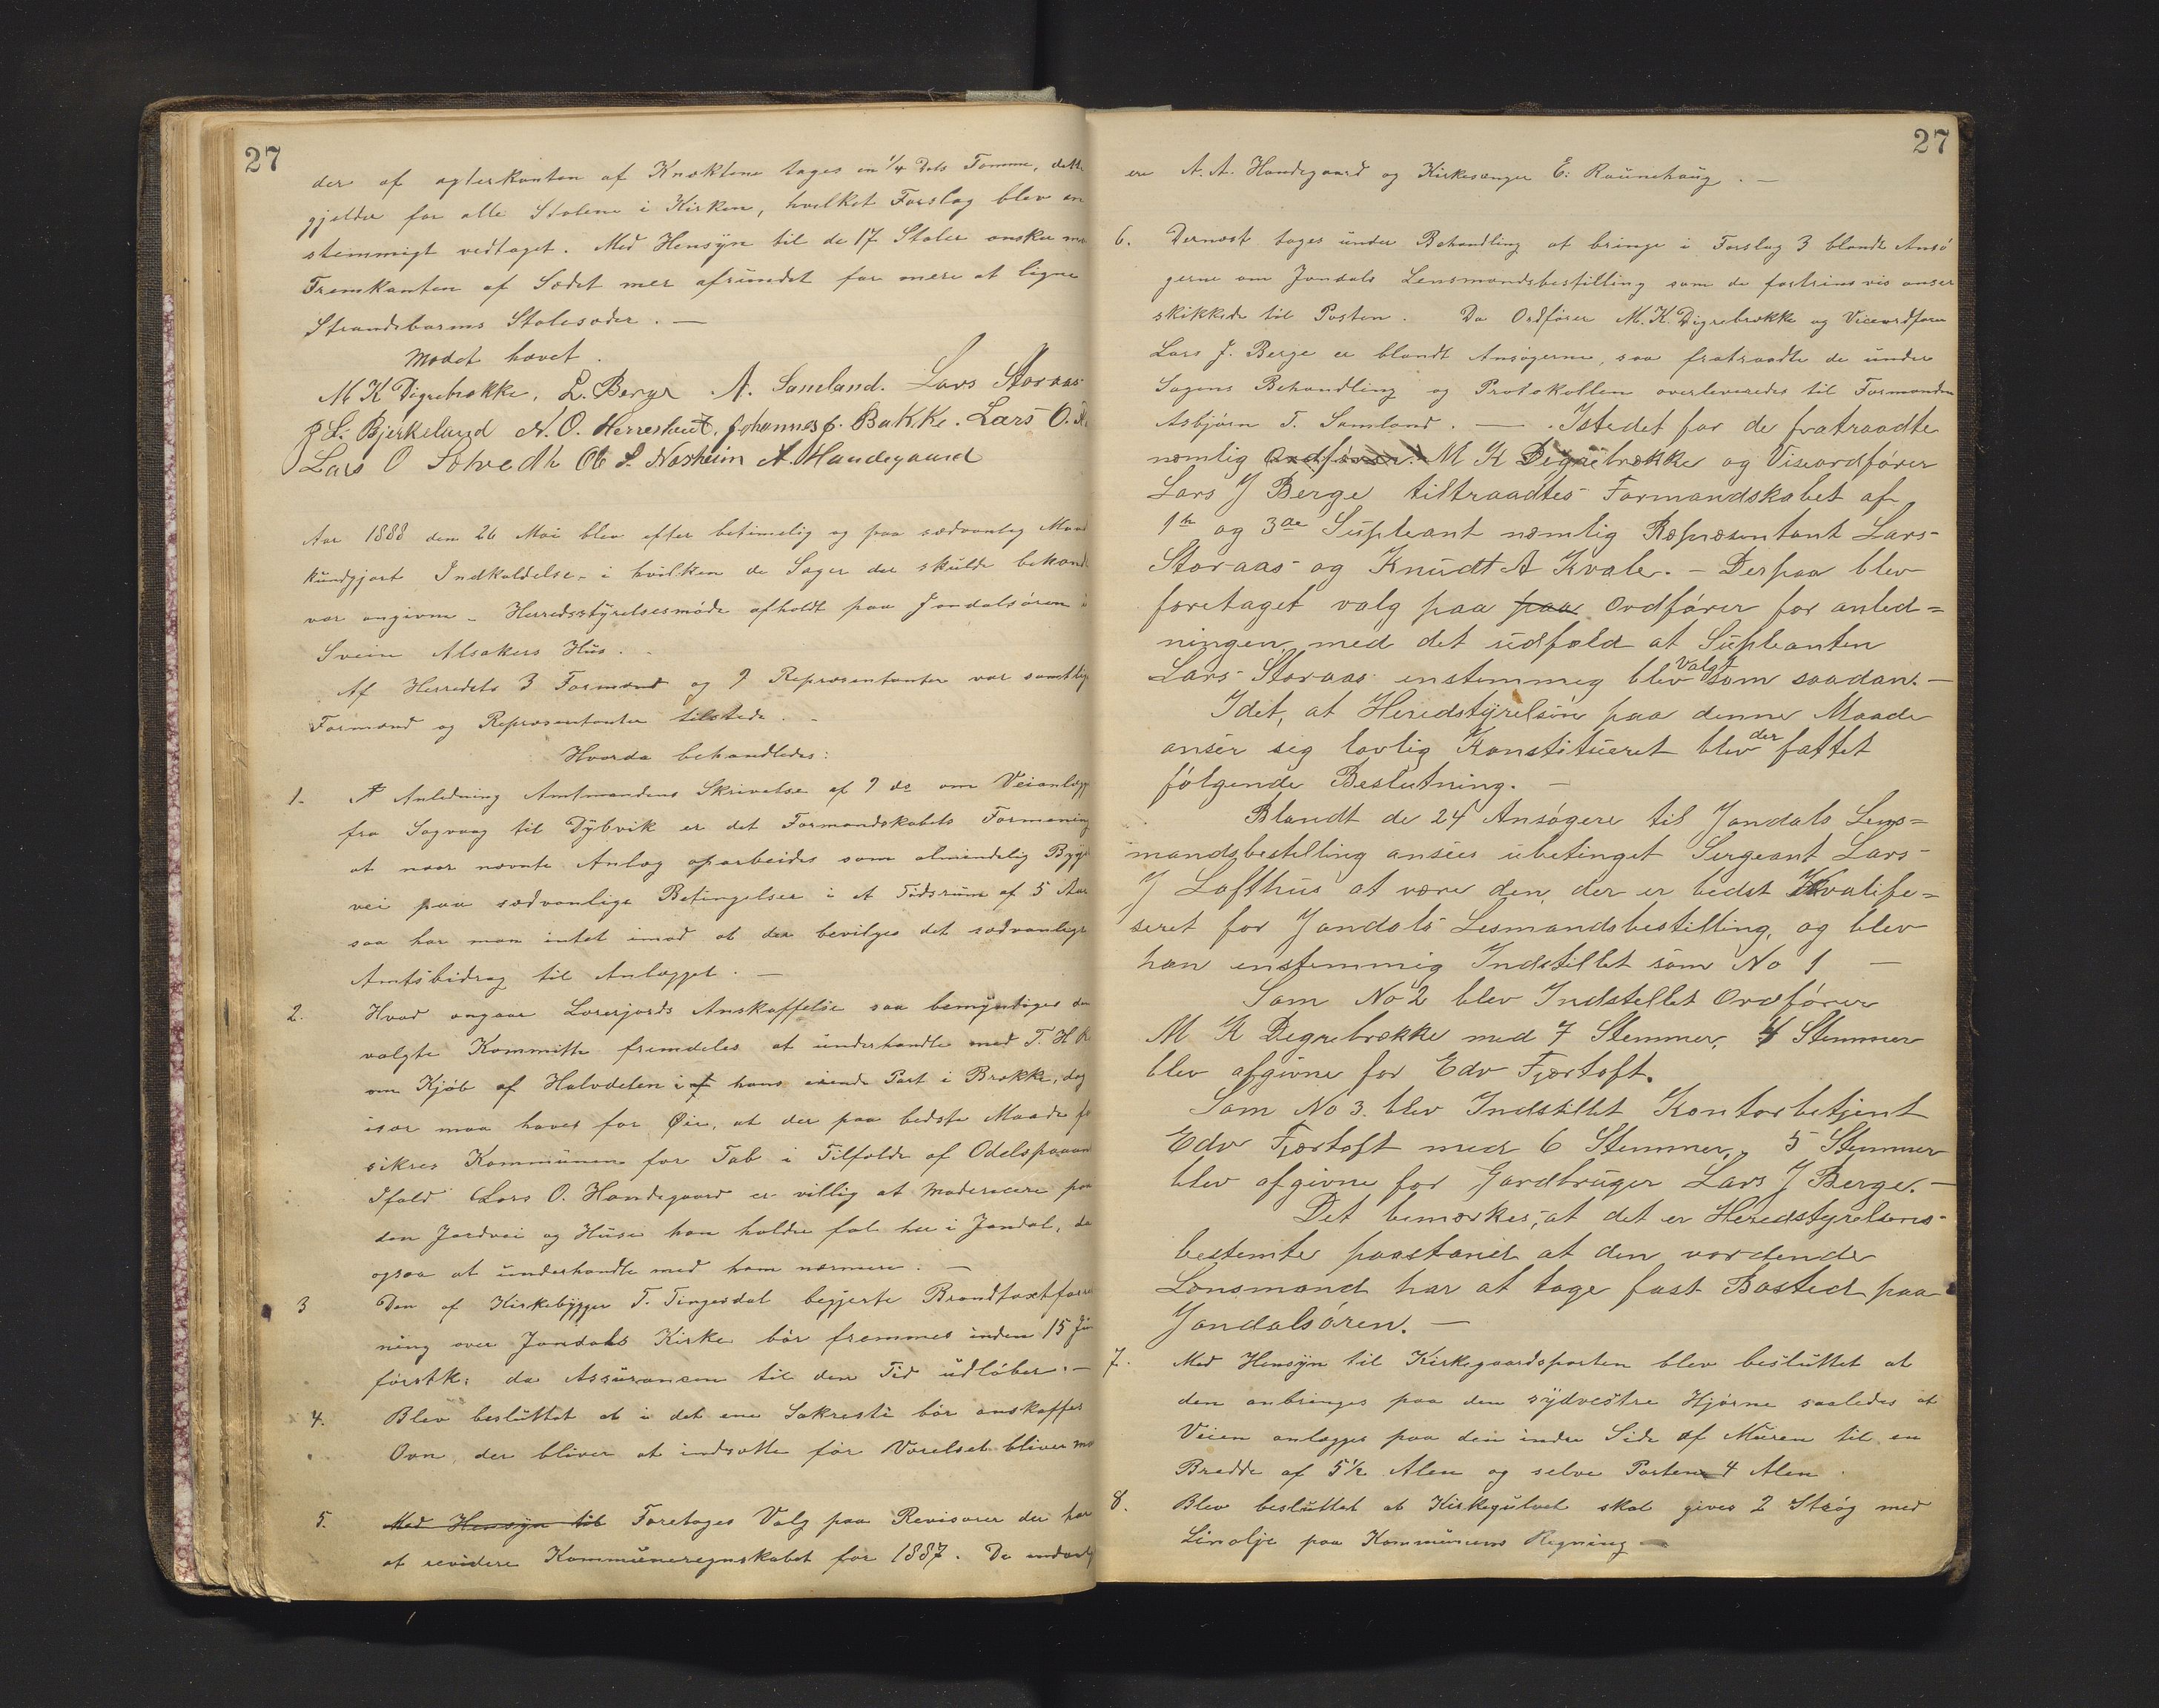 27
der af agterkanten af Knæktene tages en 1/4 Dels Tomme, dette
gjælder for alle Stolene i Kirken, hvilket Forslag blev en
stemmigt vedtaget. Med Hensÿn til de 17 Stoler ønsker
Fremkanten af Sædet mer afrundet for mere at ligne
Strandebarms Stolesæder. —
Mødet hævet.
M K Digrebrække, L. Berge A. Samland. Lars Storaas
L. Bjerkeland N. O. Herrestveit, Johannes J. Bakke. Lars O.
Lars O Solvedt Ol S. Næsheim A. Handegaard
Aar 1888 den 26 Mai blev efter betimelig og paa sædvanlig
kundgjort Indkaldelse – i hvilken de Sager der skulde
var angivne – Herredsstÿrelsesmøde afholdt paa Jondalsøren i
Svein Alsakers Hus.
Af Herredets 3 Formænd og 9 Repræsentanter var samtlige
Formænd og Repræsentanter tilstede. –
Hvorda behandledes:
1. I Anledning Amtmandens Skrivelse af 9 ds om Veianlæg
fra Sagvaag til Dÿbvik er det Formandskabets Formening
at naar nævnte Anlæg oparbeides som almindelig Bygde
vei paa sædvanlige Betingelser i et Tidsrum af 5 Aar
saa har man intet imod at der bevilges det sædvanlige
Amtsbidrag til Anlægget. —
2. Hvad angaar Lærerjords Anskaffelse saa bemÿndiges den
valgte Kommitte fremdeles at underhandle med T. H
om Kjøb af Halvdelen i af hans eiende Part i Brække, dog
især maa haves for Øie, at der paa bedste Maade
sikres Kommunen for Tab i Tilfælde af Odelspaaan
Ifald Lars O. Handegaard er villig at moderere paa
den Jordvei og Huse han holder fal her i Jondal, da
ogsaa at underhandle med ham nærmere. —
3 Den af Kirkebÿgger T. Tingesdal begjerte Brandtaxtforret
ning over Jondals Kirke bør fremmes inden 15 Juni
førstk: da Assurancen til den Tid udløber. —
4. Blev besluttet at i det ene Sakresti bør anskaffes
Ovn, der bliver at indsætte før Værelset bliver
5. Med Hensÿn til Foretages Valg paa Revisorer der har
at revidere Kommuneregnskabet for 1887. De
27
er A. A. Handegaard og Kirkesanger E: Raunehaug. —
6. Dernæst tages under Behandling at bringe i Forslag 3 blandt Ansø
gerne om Jondals Lensmandsbestilling som de fortrinsvis anser
skikkede til Posten. Da Ordfører M. K. Digrebrække og Viceordfører
Lars J. Berge er blandt Ansøgerne, saa fratraadte de under
Sagens Behandling og Protokollen overleveredes til Formanden
Asbjørn T. Samland. — . Istedet for de fratraadte
nemlig Ordfører M K Digrebrække og Viseordfører
Lars J Berge tiltraadtes Formandskabet af
1te og 3de Supleant nemlig Repræsentant Lars
Storaas og Knudt A Kvale. – Derpaa blev
foretaget valg paa paa Ordfører for anled=
ningen, med det udfald at Supleanten
Lars Storaas enstemmig blev valgt som saadan. —
Idet, at Heredstÿrelsen paa denne Maade
anser sig lovlig Konstitueret blev der fattet
følgende Beslutning. —
Blandt de 24 Ansøgere til Jondals Lens=
mandsbestelling ansees ubetinget Sergeant Lars
J Lofthus at være den, der er bedst Kvalife=
seret for Jondals Lesmandsbestilling, og blev
han enstemmig Indstillet som No 1 —
Som No 2 blev Indstellet Ordfører
M K Degrebrække med 7 Stemmer, 4 Stemmer
blev afgivne for Edv Fjærtoft.
Som No 3. blev Indstillet Kontorbetjent
Edv Fjærtoft med 6 Stemmer, 5 Stemmer
blev afgivne for Gardbruger Lars J Berge. —
Det bemærkes, at det er Heredstyrelsens
bestemte paastand at den vordende
Lensmand har at tage fast Bosted paa
Jondalsøren. —
7. Med Hensÿn til Kirkegaardsporten blev besluttet at
den anbringes paa den sÿdvestre Hjørne saaledes at
Veien anlægges paa den indre Side af Muren til en
Bredde af 5 1/2 Alen og selve Porten 4 Alen.
8. Blev besluttet at Kirkegulvet skal gives 2 Strøg med
Linolje paa Kommunens Regning —